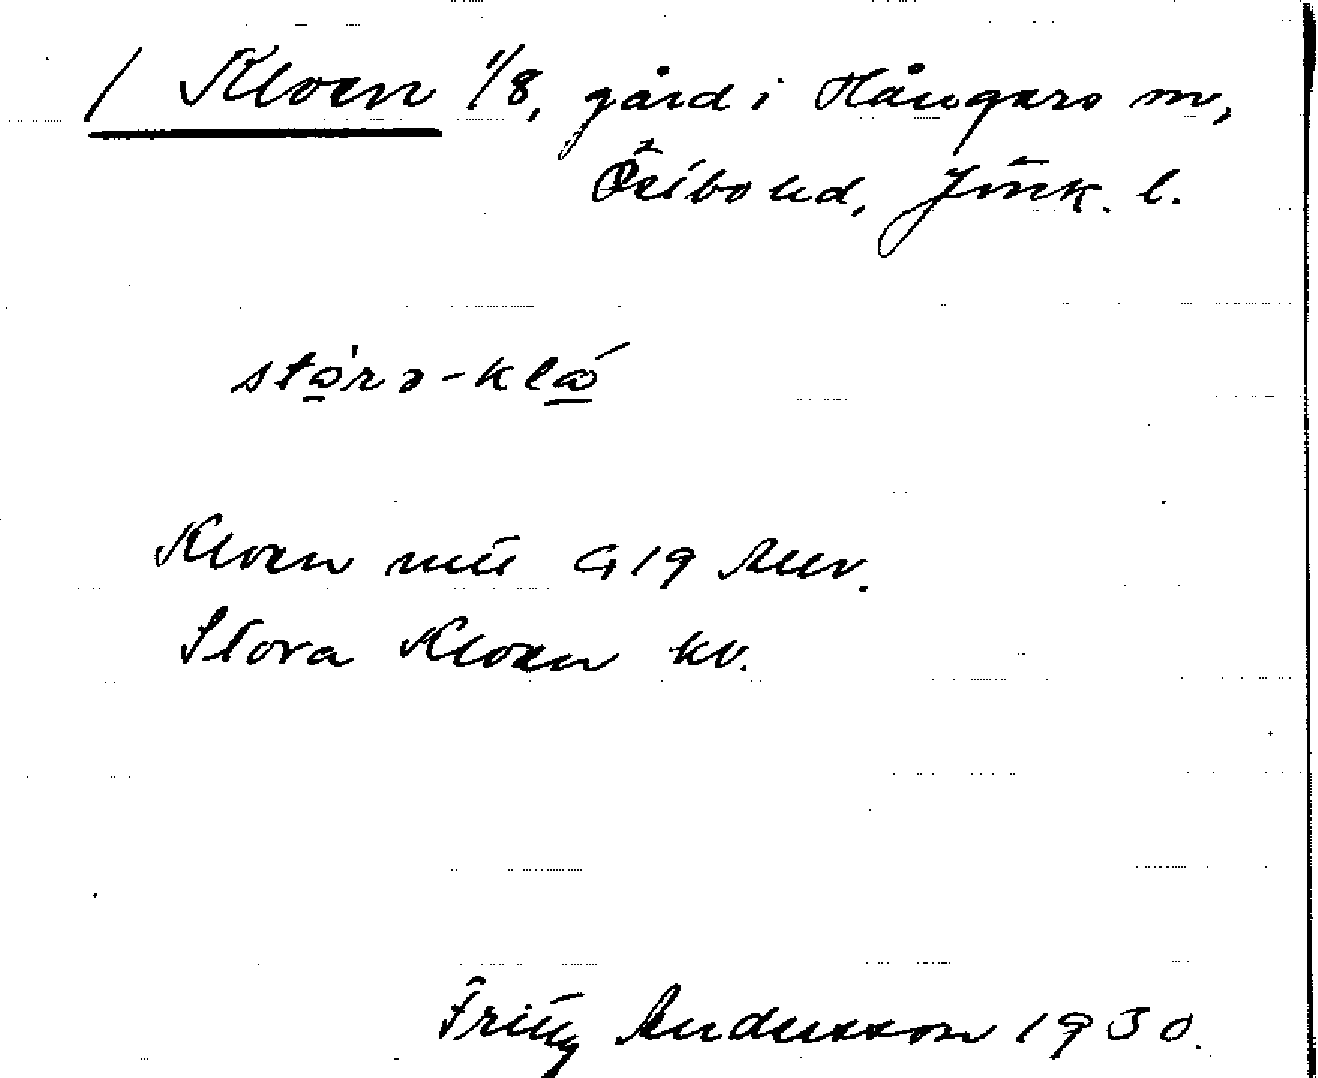 / Kloen 1/8, gård i Hångers sn,
Östbo hd, Jönk. l.
stǫ̈rə-klǫ́
Kloen mtl G 19 Allv.
Stora Kloen kv.
Fritz Andersson 1930.